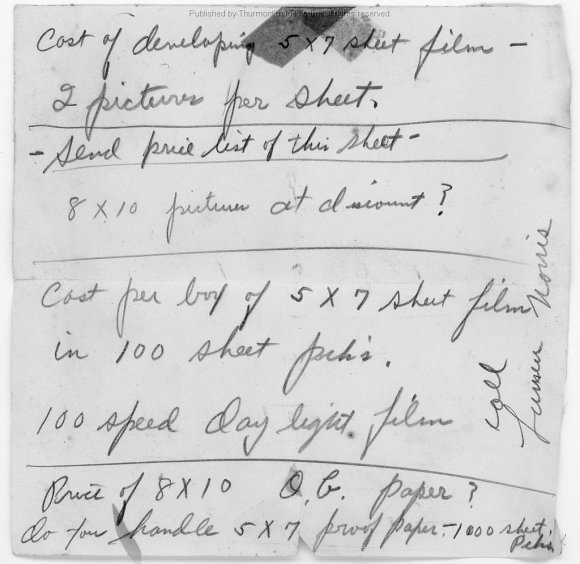 Published by Thurmont rights reserved
Cost of developing 5 X 7 sheet film -
2 pictures per sheet.
- Send price list of this sheet -
8 X 10 pictures at discount?
Cost per box of 5 X 7 sheet film
in 100 sheet pck's.
100 speed Day light film
call
Norris
Price of 8 X 10 paper?
do you handle 5 X 7 proof paper - 1000 sheet
Pck's